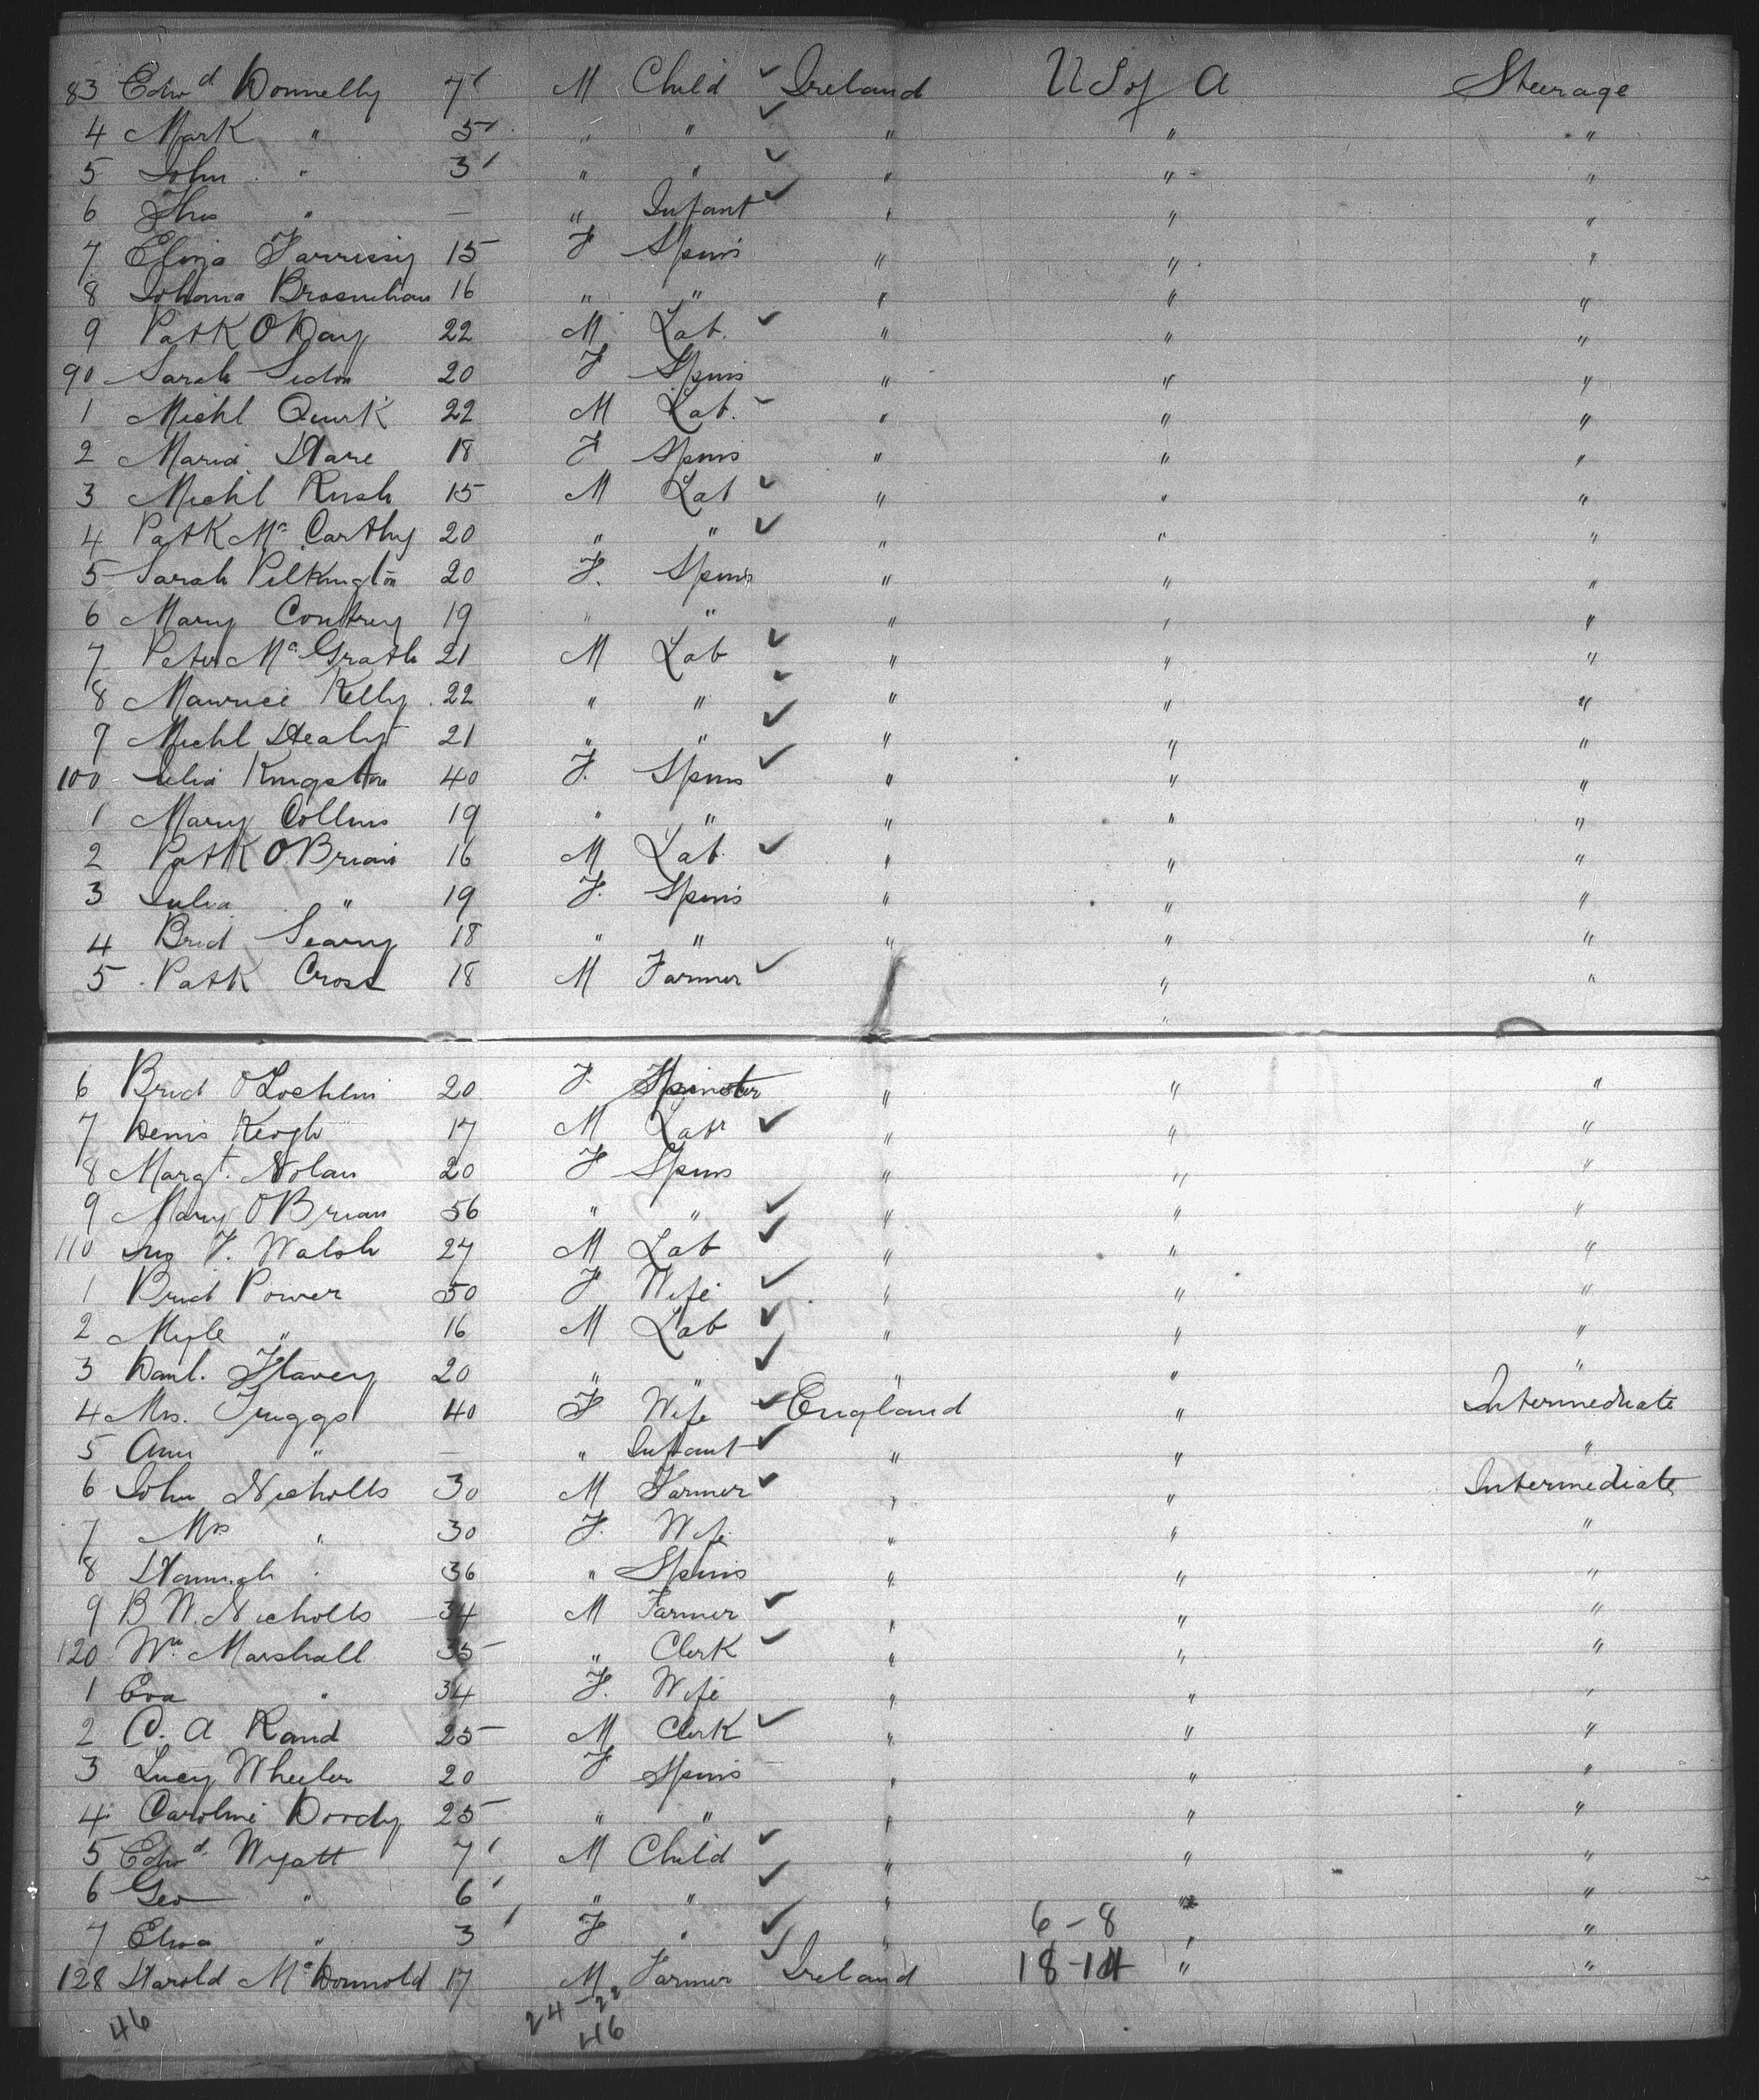 83 Edwd Donnelly 7 M Child ✓ Ireland U S of A Steerage
4 Mark " 5 " " ✓ " " "
5 John " 3 " " ✓ " " "
6 Thos " — " Infant ✓ " " "
7 Eliza 15 F Spins " " "
8 Johana Brosnehan 16 " " " " "
9 Patk O Day 22 M Lab. ✓ " " "
90 Sarah 20 F Spins " " "
1 Michl Quirk 22 M Lab. - " " "
2 Maria Hare 18 F Spins " " "
3 Michl Rush 15 M Lab ✓ " " "
4 Patk Mc Carthy 20 " " ✓ " " "
5 Sarah Pilkington 20 F. Spins " " "
6 Mary 19 " " " " "
7 Peter Mc Grath 21 M Lab ✓ " " "
8 Maurice Kelly 22 " " ✓ " " "
9 Michl Healy 21 " " ✓ " " "
100 Julia Kingston 40 F. Spins ✓ " " "
1 Mary Collins 19 " " " " "
2 Patk O Brian 16 M Lab. ✓ " " "
3 Julia " 19 F. Spins " " "
4 Brid 18 " " " " "
5 Patk Cross 18 M Farmer ✓ " " "
6 Brid O Lochlin 20 F Spinster " " "
7 Denis Keogh 17 M Labr ✓ " " "
8 Margt. Nolan 20 F Spins " " "
9 Mary O Brian 56 " " ✓ " " "
110 Jno F. Walsh 27 M Lab ✓ " " "
1 Brid Power 50 F Wife ✓ " " "
2 Myle " 16 M Lab ✓ " " "
3 Danl. 20 " " ✓ " " "
4 Mrs. Triggs 40 F Wife ✓ England " Intermediate
5 Ann " — " Infant ✓ " " "
6 John Nicholls 30 M Farmer ✓ " " Intermediate
7 Mrs " 30 F. Wife " " "
8 Hannah " 36 " Spins " " "
9 B W. Nicholls 34 M Farmer ✓ " " "
120 Wm Marshall 35 " Clerk ✓ " " "
1 Eva " 34 F. Wife " " "
2 C. A Rand 25 M Clerk ✓ " " "
3 Lucy Wheeler 20 F Spins " " "
4 Caroline Doody 25 " " " " "
5 Edwd. Wyatt 7 M Child ✓ " " "
6 Geo " 6 " " ✓ " " "
7 " 3 F " ✓ " 6-8 " "
128 Harold Mc Donnold 17 M Farmer ✓ Ireland 18-14 " "
46 24-22
46